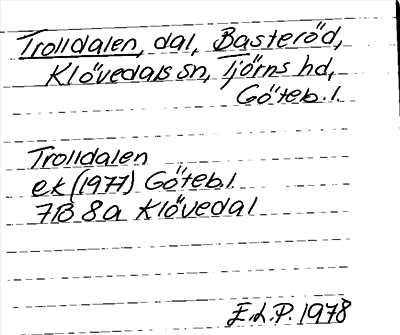 Trolldalen, dal, Basteröd,
Klövedals sn, Tjörns hd,
Göteb. l.
Trolldalen
ek (1977) Göteb. l.
7B 8a Klövedal
E.L.P. 1978